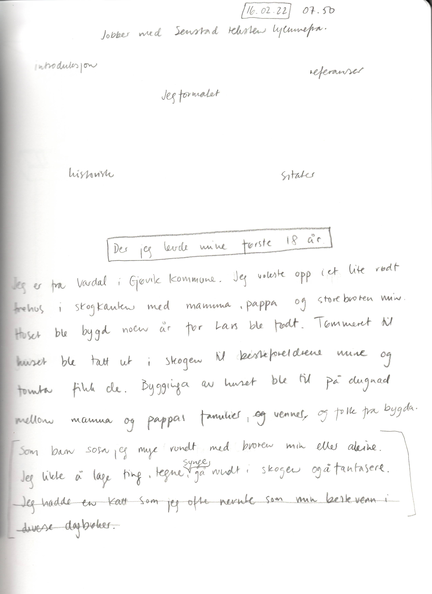 16.02.22 07.50
Jobber med Senstad teksten hjemmefra.
introduksjon
referanser
Jeg formatet
historisk
sitater
Der jeg levde mine første 18 år
Jeg er fra Vardal i Gjøvik kommune. Jeg vokste opp i et lite rødt
trehus i skogkanten med mamma, pappa og storebroren min.
Huset ble bygd noen år før Lars ble født. Tømmeret til
huset ble tatt ut i skogen til besteforeldrene mine og
tomta fikk de. Bygginga av huset ble til på dugnad
mellom mamma og pappas familier, og venner, og folk fra bygda.
Som barn jeg mye rundt med broren min eller aleine.
Jeg likte å lage ting, tegne, synge gå rundt i skogen og å fantasere.
Jeg hadde en katt som jeg ofte nevnte som min beste venn i
diverse dagbøker.